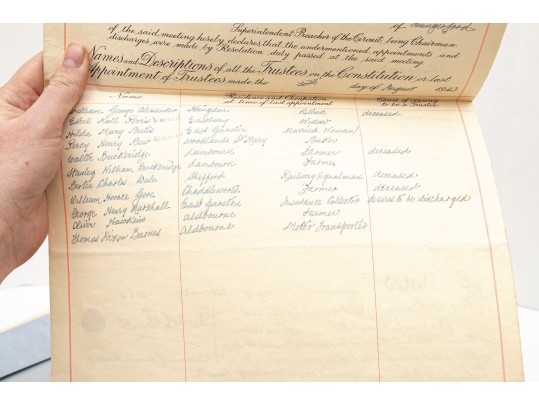 of Hungerford
Superintendent Preacher of the Circuit, being Chairman
of the said meeting hereby declares that the undermentioned appointments and
discharges were made by Resolution duly passed at the said meeting.
Names and Descriptions of all the Trustees on the Constitution or last
Appointment of Trustees made the day of August 1943
Name Residence and Occupation at time of last appointment Cause of ceasing to be a Trustee
William George Alexander Abingdon Retired deceased
Ethel Kath Eastbury Widow
Hilda Mary East Garston Married Woman
Percy Henry Woodlands St Mary
Walter Buckeridge Lambourn Farmer deceased
Stanley William Buckeridge Lambourn Farmer
Charles Shefford Railway Signalman deceased
William Horace Gore Chaddleworth Farmer deceased
George Henry Marshall East Garston Insurance Collector desires to be discharged
Oliver Hawkins Aldbourne Farmer
Thomas Dixon Barnes Aldbourne Motor Transporter